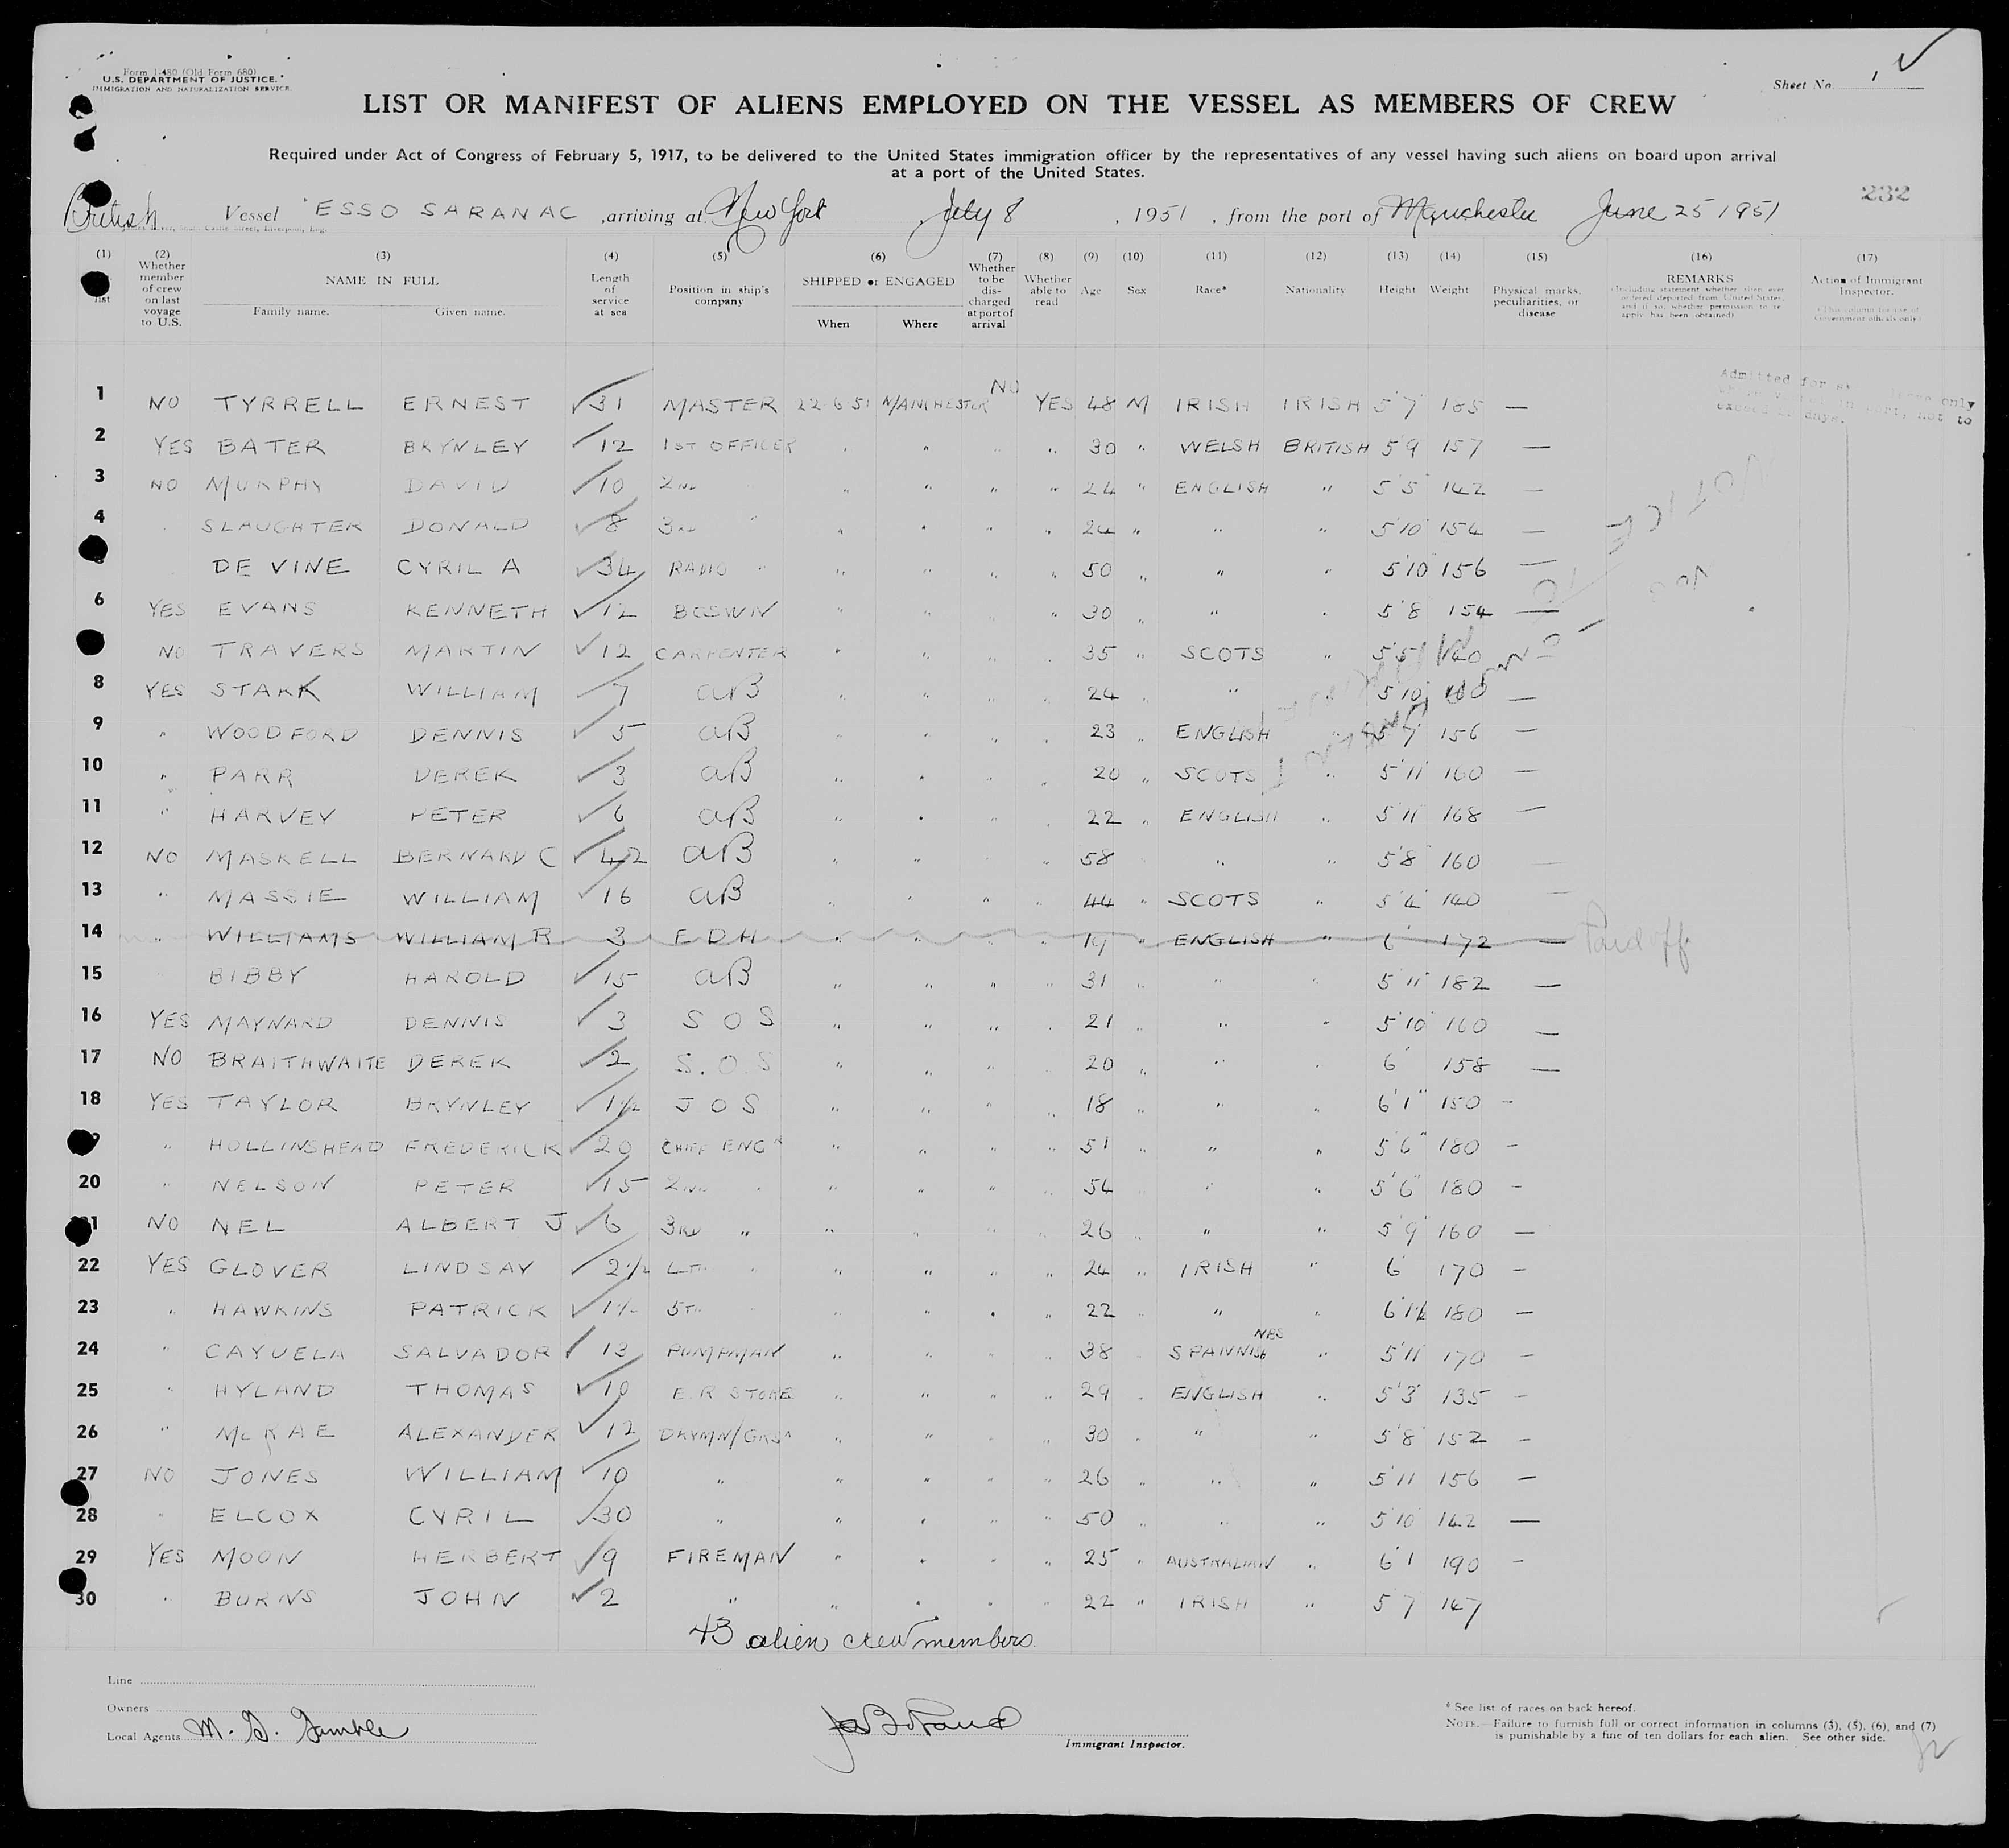 Form I-480 (Old Form 680)
U.S. DEPARTMENT OF JUSTICE.
IMMIGRATION AND NATURALIZATION SERVICE.
Sheet No. 1
LIST OR MANIFEST OF ALIENS EMPLOYED ON THE VESSEL AS MEMBERS OF CREW
Required under Act of Congress of February 5, 1917, to be delivered to the United States immigration officer by the representatives of any vessel having such aliens on board upon arrival
at a port of the United States.
232
British Vessel ESSO SARANAC , arriving at New York , July 8 , 1951 , from the port of Manchester June 25 1951
(1) (2) (3) (4) (5) (6) (7) (8) (9) (10) (11) (12) (13) (14) (15) (16) (17)
list Whether member of crew on last voyage to U.S. NAME IN FULL Family name. Given name. Length of service at sea Position in ship's company SHIPPED or ENGAGED When Where Whether to be discharged at port of arrival Whether able to read Age Sex Race* Nationality Height Weight Physical marks, peculiarities, or disease REMARKS (Including statement whether alien ever ordered deported from United States, and if so, whether permission to re apply has been obtained) Action of Immigrant Inspector. (This column for use of Government officials only)
Admitted for only
in port, not to
exceed days.
1 NO TYRRELL ERNEST 31 MASTER 22-6-51 MANCHESTER NO YES 48 M IRISH IRISH 5'7" 185 —
2 YES BATER BRYNLEY 12 1ST OFFICER " " " " 30 " WELSH BRITISH 5'9 157 —
3 NO MURPHY DAVID 10 2ND " " " " " 24 " ENGLISH " 5'5" 142 —
4 " SLAUGHTER DONALD 8 3RD " " " " " 24 " " " 5'10" 154 —
DE VINE CYRIL A 34 RADIO " " " " " 50 " " " 5'10" 156 —
6 YES EVANS KENNETH 12 BOSWN " " " " 30 " " " 5'8 154 —
NO TRAVERS MARTIN 12 CARPENTER " " " " 35 " SCOTS " 5'5" 140 —
8 YES STARK WILLIAM 7 AB " " " " 24 " " " 5'10" 160 —
9 " WOODFORD DENNIS 5 AB " " " " 23 " ENGLISH " 156 —
10 " PARR DEREK 3 AB " " " " 20 " SCOTS " 5'11" 160 —
11 " HARVEY PETER 6 AB " " " " 22 " ENGLISH " 5'11" 168 —
12 NO MASKELL BERNARD C 42 AB " " " " 58 " " " 5'8" 160 —
13 " MASSIE WILLIAM 16 AB " " " " 44 " SCOTS " 5'4" 140 —
14 " WILLIAMS WILLIAM R 3 E D H " " " " 19 " ENGLISH " 6' 172 — Paid off
15 BIBBY HAROLD 15 AB " " " " 31 " " " 5'11" 182 —
16 YES MAYNARD DENNIS 3 S O S " " " " 21 " " " 5'10" 160 —
17 NO BRAITHWAITE DEREK 2 S.O.S " " " " 20 " " " 6' 158 —
18 YES TAYLOR BRYNLEY 1½ J O S " " " " 18 " " " 6'1" 150 -
" HOLLINSHEAD FREDERICK 20 CHIEF ENGR " " " " 51 " " " 5'6" 180 -
20 " NELSON PETER 15 2ND " " " " " 54 " " " 5'6" 180 -
21 NO NEL ALBERT J 6 3RD " " " " " 26 " " " 5'9" 160 —
22 YES GLOVER LINDSAY 2½ 4TH " " " " " 24 " IRISH " 6' 170 -
23 " HAWKINS PATRICK 1½ 5TH " " " " " 22 " " " 6'1½ 180 -
24 " CAYUELA SALVADOR 13 PUMPMAN " " " " 38 " SPANNISH NBS " 5'11" 170 -
25 " HYLAND THOMAS 10 E.R STORE " " " " 29 " ENGLISH " 5'3" 135 -
26 " McRAE ALEXANDER 12 DKYMN/GRSR " " " " 30 " " " 5'8" 152 -
27 NO JONES WILLIAM 10 " " " " " 26 " " " 5'11 156 —
28 " ELCOX CYRIL 30 " " " " " 50 " " " 5'10" 142 —
29 YES MOON HERBERT 9 FIREMAN " " " " 25 " AUSTRALIAN " 6'1 190 -
30 " BURNS JOHN 2 " " " " " 22 " IRISH " 5'7 147
43 alien crew members.
Line
Owners
Local Agents M. G. Gamble
Immigrant Inspector.
* See list of races on back hereof.
NOTE.—Failure to furnish full or correct information in columns (3), (5), (6), and (7)
is punishable by a fine of ten dollars for each alien. See other side.